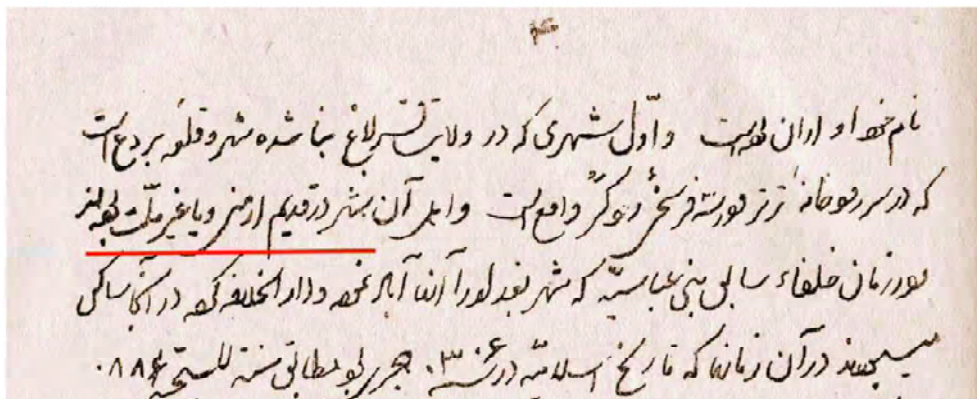 نام خود او اران بوده است و اوّل شهری که در ولایت قراباغ بنا شده شهر و قلعه بردع است
که در سر رودخانهٔ ترتر در سه فرسخیٔ رود کُر واقع است و اهل آن شهر در قدیم ارمنی و یا غیر ملّت بوده‌اند
و در زمان خلفاء سابق بنی عباسیّه که شهر بغداد را آنها آباد نموده و دار الخلافه کرده در آنجا ساکن
میبودند در آن زمانها که تاریخ اسلامیّه در سنه هجری بود مطابق سنه